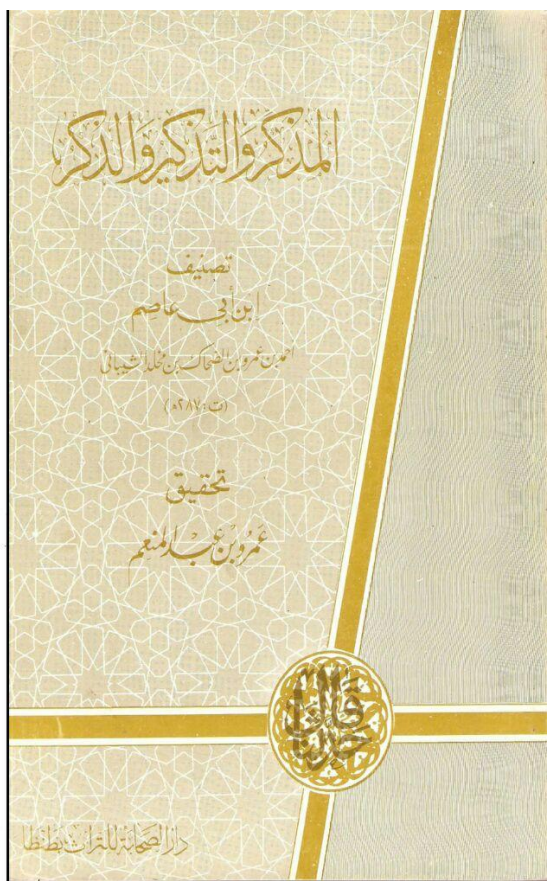 المذكر والتَّذكير والذكر
تصنيف
ابن أبي عاصم
احمد بن عمرو بن الضحاك بن مخلد الشيباني
(ت: ٢٨٧ھ)
تحقيق
عَمرو بن عبد المنعم
قال حدثنا
دار الصحابة للتراث بطنطا